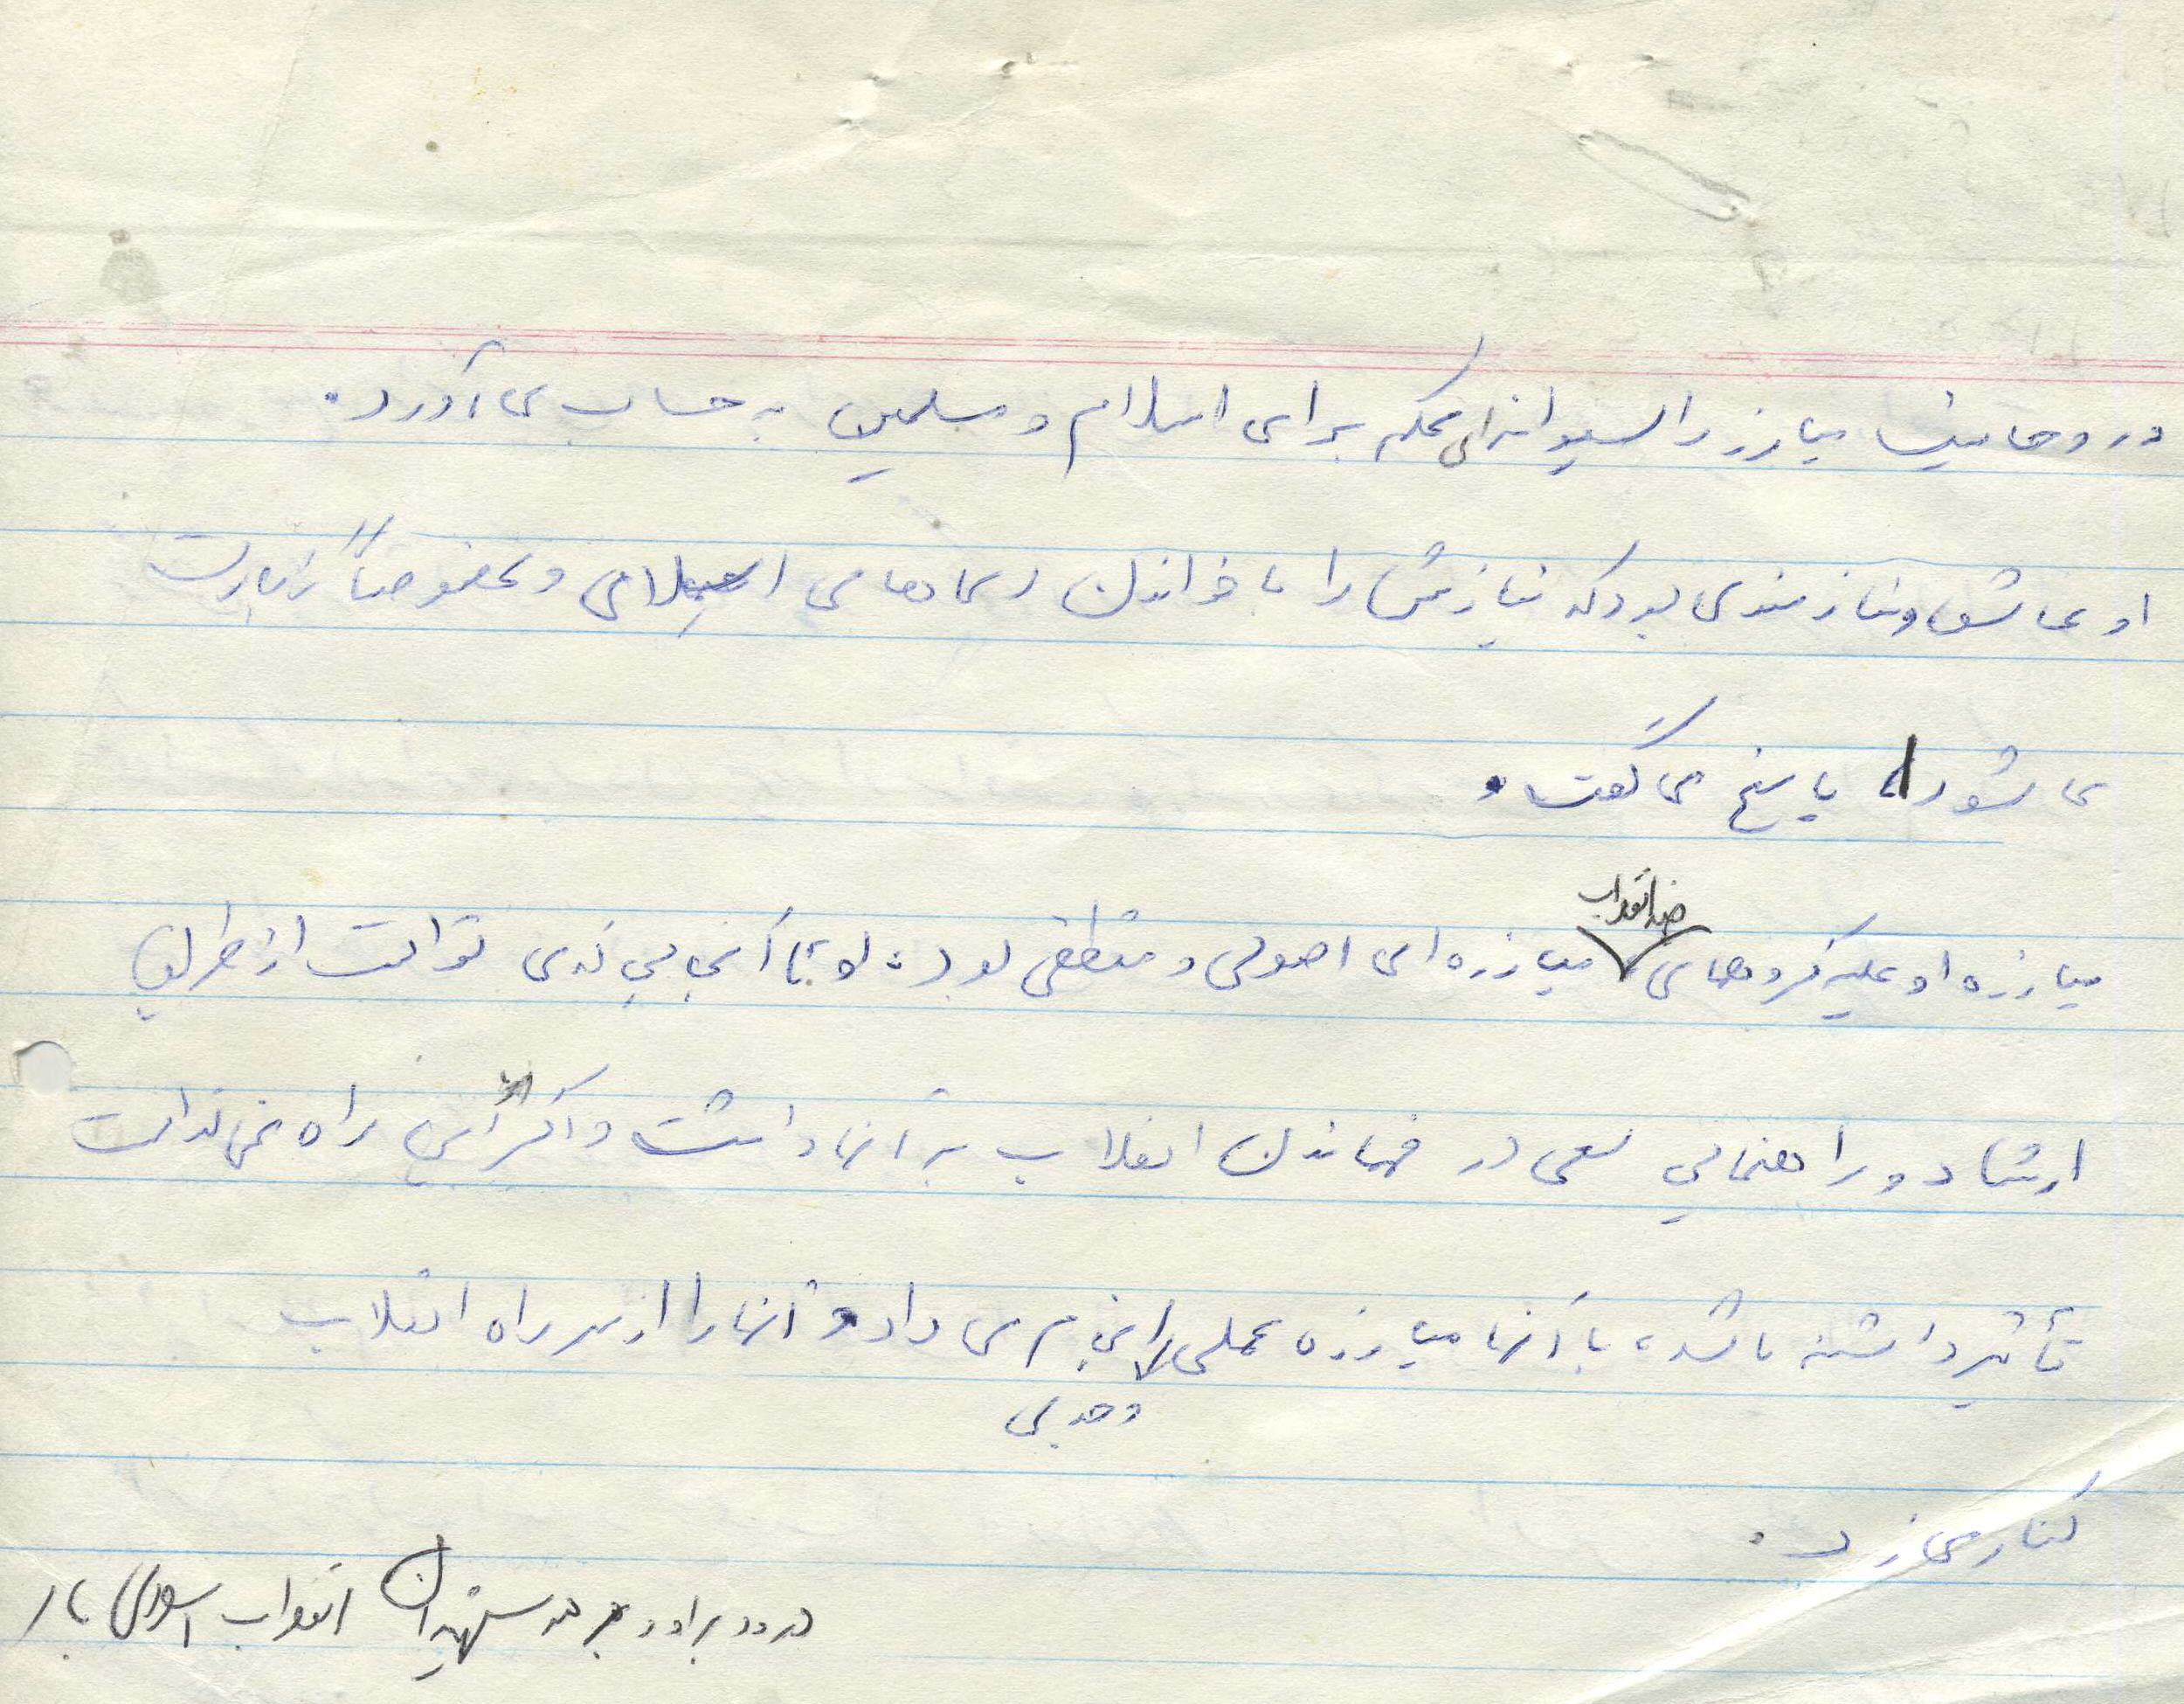 و روحانیت مبارز را پشتوانه‌ای محکم برای اسلام و مسلمین به حساب می‌آورد.
او عاشق و نیازمندی بود که نیازش را با خواندن دعاهای اسلامی و مخصوصاً زیارت
عاشورا پاسخ می‌گفت.
مبارزه او علیه گروههای ضد انقلاب مبارزه‌ای اصولی و منطقی بود، او تا آنجایی که می توانست از طریق
ارشاد و راهنمایی سعی در فهماندن انقلاب به آنها داشت و اگر این راه نمی توانست
تأثیر داشته باشد، با آنها مبارزه عملی و جدی را انجام می داد و آنها را از سر راه انقلاب
کنار می زد.
درود بر او و بر همه شهیدان انقلاب اسلامی باد